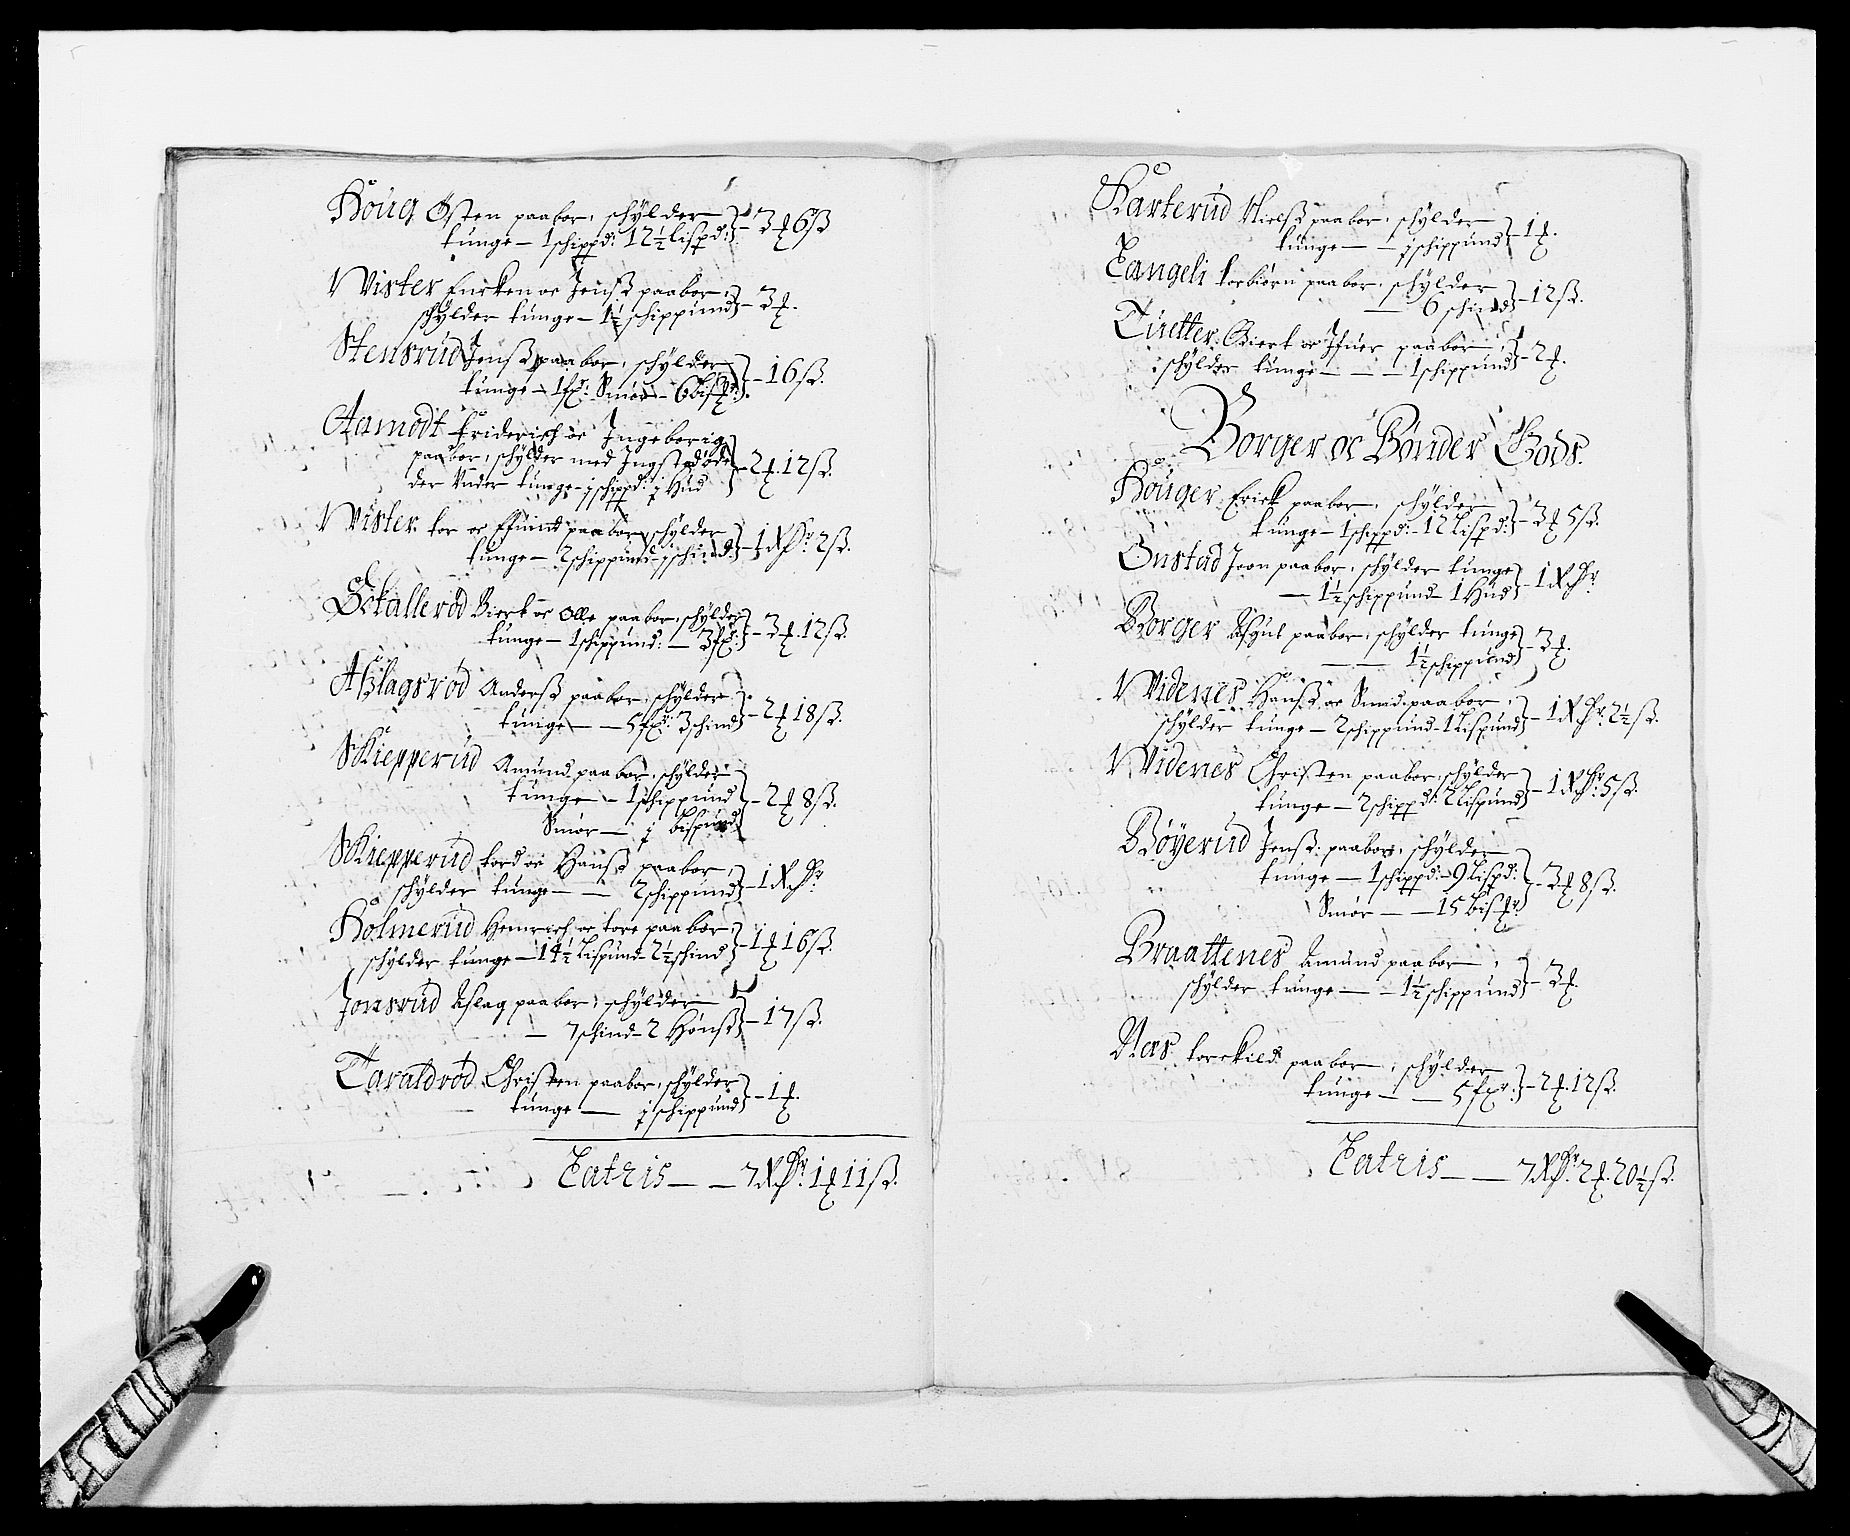 Houg Østen paabor, schÿlder
tunge – 1 schippd: 12½ lispd: – 3 ƒ 6 ß
Wister Encken oc Jenß paabor,
schÿlder tunge – 1½ schippund – 3 ƒ.
Stensrud Jenß paabor, schÿlder
tunge – 1 fr: Smør – 6 bisp: – 16 ß.
Aamodt Friderich oc Ingeborig
paabor, schÿlder med Ingsted øde
der Under tunge – j schippd: j Hud – 2 ƒ. 12 ß.
Wister tor oc paabor schÿlder
tunge – 2 schippund – j schind: – 1 Rdr 2 ß.
Schallerød Biert oc Olle paabor, schÿlder
tunge – 1 schippund: – 3 fr: – 3 ƒ. 12 ß.
Aßlagsrød Anderß paabor, schÿlder
tunge – 5 fr: 3 schind – 2 ƒ 18 ß.
Skiepperud Amund paabor, schÿlder
tunge – 1 schippund
Smør – j bispund – 2 ƒ 8 ß.
Skiepperud tord oc Hanß paabor,
schÿlder tunge – 2 schippund – 1 Rdr
Holmerud Henrich oc tore paabor,
schÿlder tunge – 14½ Lispund – 2½ schind – 1 ƒ 16 ß.
Jonsrud Aslag paabor, schÿlder
– 7 schind – 2 Hønß – 17 ß.
Taraldrød Christen paabor, schÿlder
tunge – j schippund – 1 ƒ.
Latris – 7 Rdr. 1 ƒ 11 ß.
Karterud Nielß paabor, schÿlder
tunge – j schippund – 1 ƒ.
Langeli torbiørn paabor, schÿlder
– 6 schind – 12 ß.
Tuetter. Biert oc Ifuer paabor,
schÿlder tunge – 1 schippund – 2 ƒ.
Borger oc Bønder Gods.
Houger Erick paabor, schÿlder
tunge – 1 schippd: – 12 Lispd: – 3 ƒ 5 ß.
Onstad Joen paabor, schÿlder tunge
– 1½ schippund – 1 Hud – 1 Rdr
Borger paabor, schÿlder tunge
– 1½ schippund – 3 ƒ.
Widenes Hanß oc Simd paabor,
schÿlder tunge – 2 schippund – 1 Lispund – 1 Rdr. 2½ ß.
Widenes Christen paabor, schÿlder
tunge – 2 schippd: 2 Lispund – 1 Rdr: 5 ß.
Bøyerud Jenß: paabor, schÿlder
tunge – 1 schippd: – 9 Lispd:
Smør – 15 bispd – 3 ƒ 8 ß.
Braattenes Amund paabor,
schÿlder tunge – 1½ schippund – 3 ƒ.
Nes torckild paabor, schÿlder
tunge – 5 fr: – 2 ƒ. 12 ß.
Latris – 7 Rdr: 2 ƒ. 20½ ß.